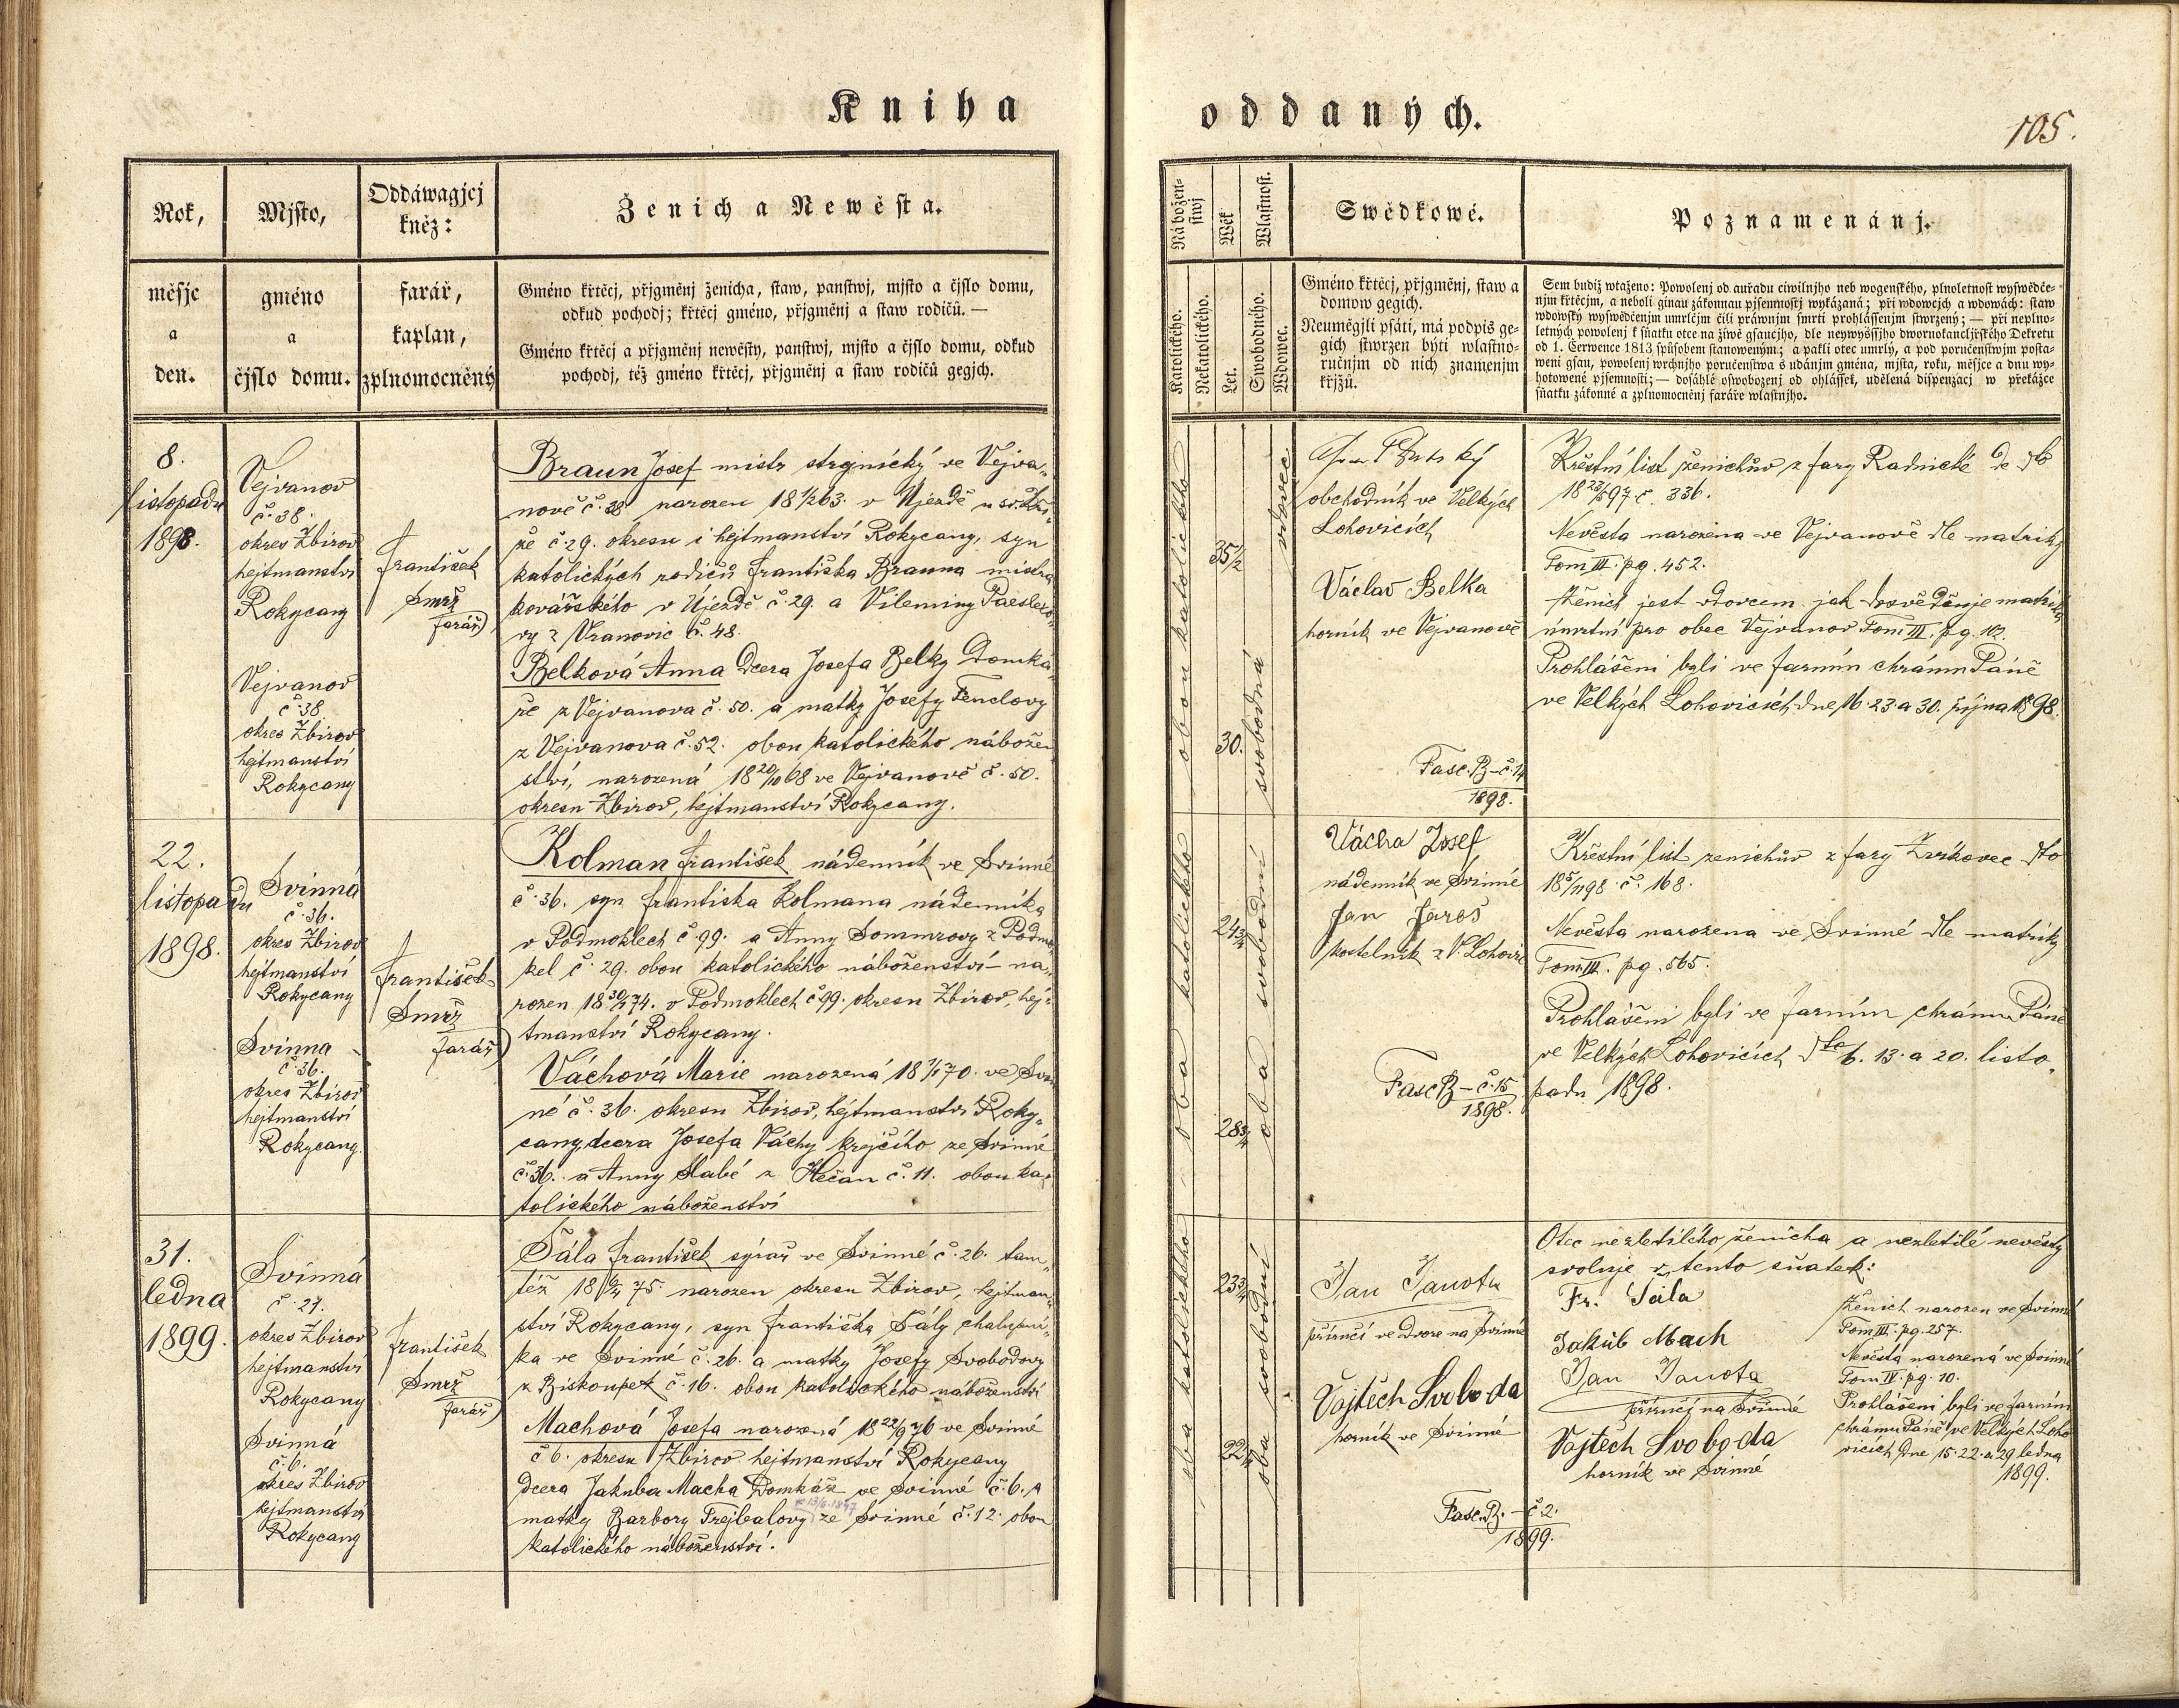 Kniha
oddaných.
105.
Rok,
měsjc
a
den.
Mjsto,
gméno
a
čjslo domu.
Oddáwagjcj
kněz:
farář,
kaplan,
zplnomocněný
Ženich a Newěsta.
Gméno křtěcj, přjgměnj ženicha, staw, panstwj, mjsto a čjslo domu,
odkud pochodj; křtěcj gméno, přjgměnj a staw rodičů. —
Gméno křtěcj a přjgměnj newěsty, panstwj, mjsto a čjslo domu, odkud
pochodj, též gméno křtěcj, přjgměnj a staw rodičů gegjch.
Nábožen-
stwj
Wěk
Wlastnost.
Katolického.
Nekatolického.
Let.
Swobodného.
Wdowec.
Swědkowé.
Gméno křtěcj, přjgměnj, staw a
domow gegich.
Neumějgli psáti, má podpis ge-
gich stwrzen býti wlastno-
ručnjm od nich znamenjm
křjžů.
Poznamenánj.
Sem budiž wtaženo: Powolenj od auřadu ciwilnjho neb wogenského, plnoletnost wyswědče-
njm křtěcjm, a neboli ginau zákonnau pjsemnostj wykázaná; při wdowcjch a wdowách: staw
wdowský wyswědčenjm umrlčjm čili práwnjm smrti prohlássenjm stwrzený; — při neplno-
letných powolenj k sňatku otce na žiwě gsaucjho, dle neywyššjho dwornokancljřského Dekretu
od 1. Čerwence 1813 spůsobem stanoweným; a pakli otec umrlý, a pod poručenstwjm posta-
weni gsau, powolenj wrchnjho poručenstwa s udánjm gména, mjsta, roku, měsjce a dnu wy-
hotowené pjsemnosti; — dosáhlé oswobozenj od ohlášek, udělená dispenzacj w překážce
sňatku zákonné a zplnomocněnj faráře wlastnjho.
8.
listopadu
1898.
Vejvanov
č. 38.
okres Zbirov
hejtmanství
Rokycany
Vejvanov
č. 38
okres Zbirov
hejtmanství
Rokycany
František
Smrž
farář
Braun Josef mistr strojnický ve Vejva-
nově č. 38 narozen 18 1/2 63. v Újezdě u sv. Kří-
že č 29. okresu i hejtmanství Rokycany, syn
katolických rodičů Františka Brauna mistra
kovářského v Újezdě č. 29. a Vileminy
vy z Vranovic č. 48.
Belková Anna dcera Josefa Belky domká-
ře z Vejvanova č. 50. a matky Josefy Fenclovy
z Vejvanova č. 52. obou katolického nábožen-
ství, narozená 18 20/10 68 ve Vejvanově č. 50.
okresu Zbirov, hejtmanství Rokycany.
obou katolického
35 1/2
30.
vdovec
svobodná
obchodník ve Velkých
Lohovicích
Václav Belka
horník ve Vejvanově
Fasc. B – č. 14
1898.
Křestní list ženichův z fary Radnické de dto
18 23/8 97 č. 336.
Nevěsta narozena ve Vejvanově dle matriky
Tom III. pg. 452.
Ženich jest vdovcem jak dosvědčuje matrika
úmrtní pro obec Vejvanov Tom III. pg. 102.
Prohlášeni byli ve farním chrámu Páně
ve Velkých Lohovicích dne 16. 23. a 30. října 1898.
22.
listopadu
1898.
Svinná
č. 36.
okres Zbirov
hejtmanství
Rokycany
Svinna
č. 36.
okres Zbirov
hejtmanství
Rokycany.
František
Smrž
farář
Kolman František nádenník ve Svinné
č. 36. syn Františka Kolmana nádenníka
v Podmoklech č. 99. a Anny Sommrovy z Podmo-
kel č. 29. obou katolického náboženství – na-
rozen 18 30/1 74. v Podmoklech č 99. okresu Zbirov, hej-
tmanství Rokycany.
Váchová Marie narozená 18 1/1 70. ve Svin-
né č. 36. okresu Zbirov, hejtmanství Roky-
cany, dcera Josefa Váchy krejčího ze Svinné
č. 36. a Anny Slabé z Hlečan č. 11. obou ka-
tolického náboženství
oba katolického
24 3/4
28 3/4
oba svobodní
Vácha Josef
nádenník ve Svinné
Jan Jaroš
kostelník z V. Lohovic
Fasc B – č. 15
1898.
Křestní list ženichův z fary Zvíkovec dto
18 5/11 98 č. 168.
Nevěsta narozena ve Svinné dle matriky
Tom III. pg. 565.
Prohlášeni byli ve farním chrámu Páně
ve Velkých Lohovicích dto 6. 13. a 20. listo-
padu 1898.
31.
ledna
1899.
Svinná
č. 27.
okres Zbirov
hejtmanství
Rokycany
Svinná
č. 6.
okres Zbirov
hejtmanství
Rokycany
František
Smrž
farář
Šála František sýrař ve Svinné č. 26. tam-
též narozen okresu Zbirov, hejtman-
ství Rokycany, syn Františka Šály chalupní-
ka ve Svinné č. 26. a matky Josefy Svobodovy
z Biskoupek č. 16. obou katolického náboženství
Machová Josefa narozená 18 22/9 76 ve Svinné
č 6. okresu Zbirov hejtmanství Rokycany
dcera Jakuba Macha domkáře ve Svinné č. 6. a
matky Barbory Trejbalovy ze Svinné č. 12. obou
katolického náboženství.
oba katolického
23 3/4
22 1/4
oba svobodní
Jan Janota
příručí ve dvoře na Svinné
Vojtěch Svoboda
horník ve Svinné
Fasc. B. – č 2.
1899.
Otec nezletilého ženicha a nezletilé nevěsty
svoluje v tento sňatek:
Fr. Šála
Jakub Mach
Jan Janota
příručí na Svinné
Vojtěch Svoboda
horník ve Svinné
Ženich narozen ve Svinné
Tom III. pg. 257.
Nevěsta narozená ve Svinné
Tom IV. pg. 10.
Prohlášeni byli ve farním
chrámu Páně ve Velkých Loho-
vicích dne 15. 22. a 29 ledna
1899.